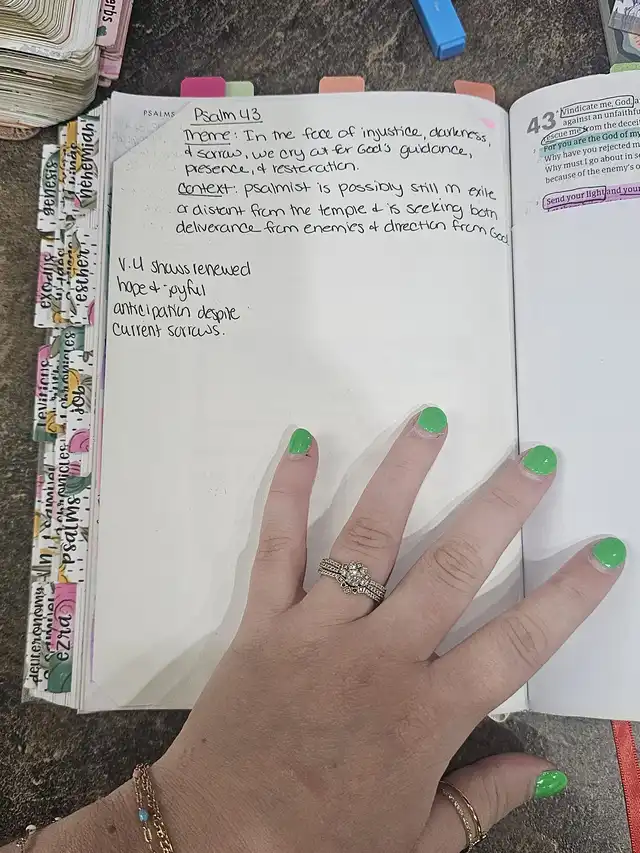 PSALMS
Psalm 43
Theme: In the face of injustice, darkness,
& sorrow, we cry out for God's guidance,
presence, & restoration.
Context: psalmist is possibly still in exile
or distant from the temple & is seeking both
deliverance from enemies & direction from God
v.4 shows renewed
hope & joyful
anticipation despite
current sorrows.
43 Vindicate me, God, a
against an unfaithfu
rescue me from the deceit
For you are the God of m
Why have you rejected m
Why must I go about in s
because of the enemy's o
Send your light and your
genesis
nehemiah
exodus
esther
leviticus
chronicles
job
chronicles
psalms
deuteronomy
ezra